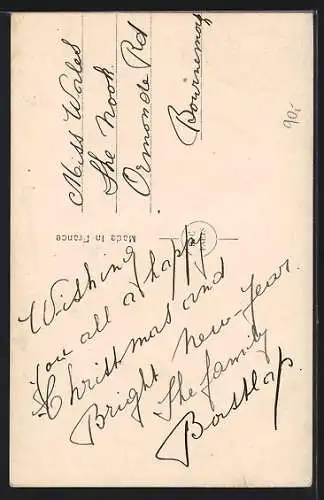 Miss Wales
The Nook
Ormonde Rd
Bournemo
90,-
Made in France
Wishing
you all a happy
Christmas and
Bright new-year.
The family
Bastlap